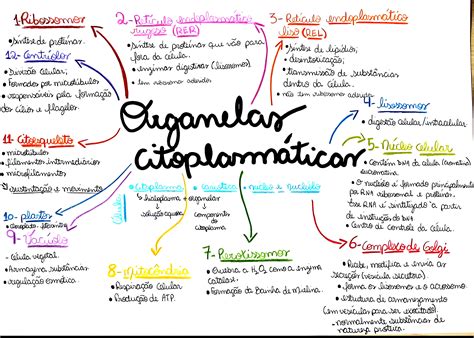 1. Ribossomos
• síntese de proteínas.
12- Centríolos
• Divisão celular;
• Formados por microtúbulos
• responsáveis pela formação
dos cílios e flagelos.
11- Citoesqueleto
• microtúbulos
• filamentos intermediários
• microfilamentos
sustentação e movimento
10- plastos
9- Vacúolo
• célula vegetal
• Armazena substâncias
• regulação osmótica
8- Mitocôndria
• Respiração Celular
• Produção de ATP.
2- Retículo endoplasmático
rugoso (RER)
• síntese de proteínas que vão para
fora da célula.
• enzimas digestivas (lisossomos)
• tem ribossomo aderido
3- Retículo endoplasmático
liso (REL)
• síntese de lipídios;
• desintoxicação;
• transmissão de substâncias
dentro da Célula.
• não tem ribossomo aderido
Organelas
citoplasmáticas
Célula
Citoplasma
núcleo e nucléolo
hialoplasma + organelas
solução aquosa
componentes
do
citoplasma
4- lisossomos
• digestão celular/intracelular
5- Núcleo celular
• Contém DNA da célula
• O nucléolo é formado principalmente
por RNA ribossomal e proteínas.
Esse RNA é sintetizado a partir
de instruções do DNA
• Centro de controle da célula.
6- Complexo de Golgi
• Recebe, modifica e envia as
secreções (vesícula secretora).
• forma os lisossomos e o acrossomo
• estrutura de armazenamento
(em vesículas para ser exportado).
- normalmente substâncias de
natureza proteica.
7- Peroxissomos
• Quebra a H₂O₂ com a enzima
catalase.
• Formação da Bainha de Mielina.